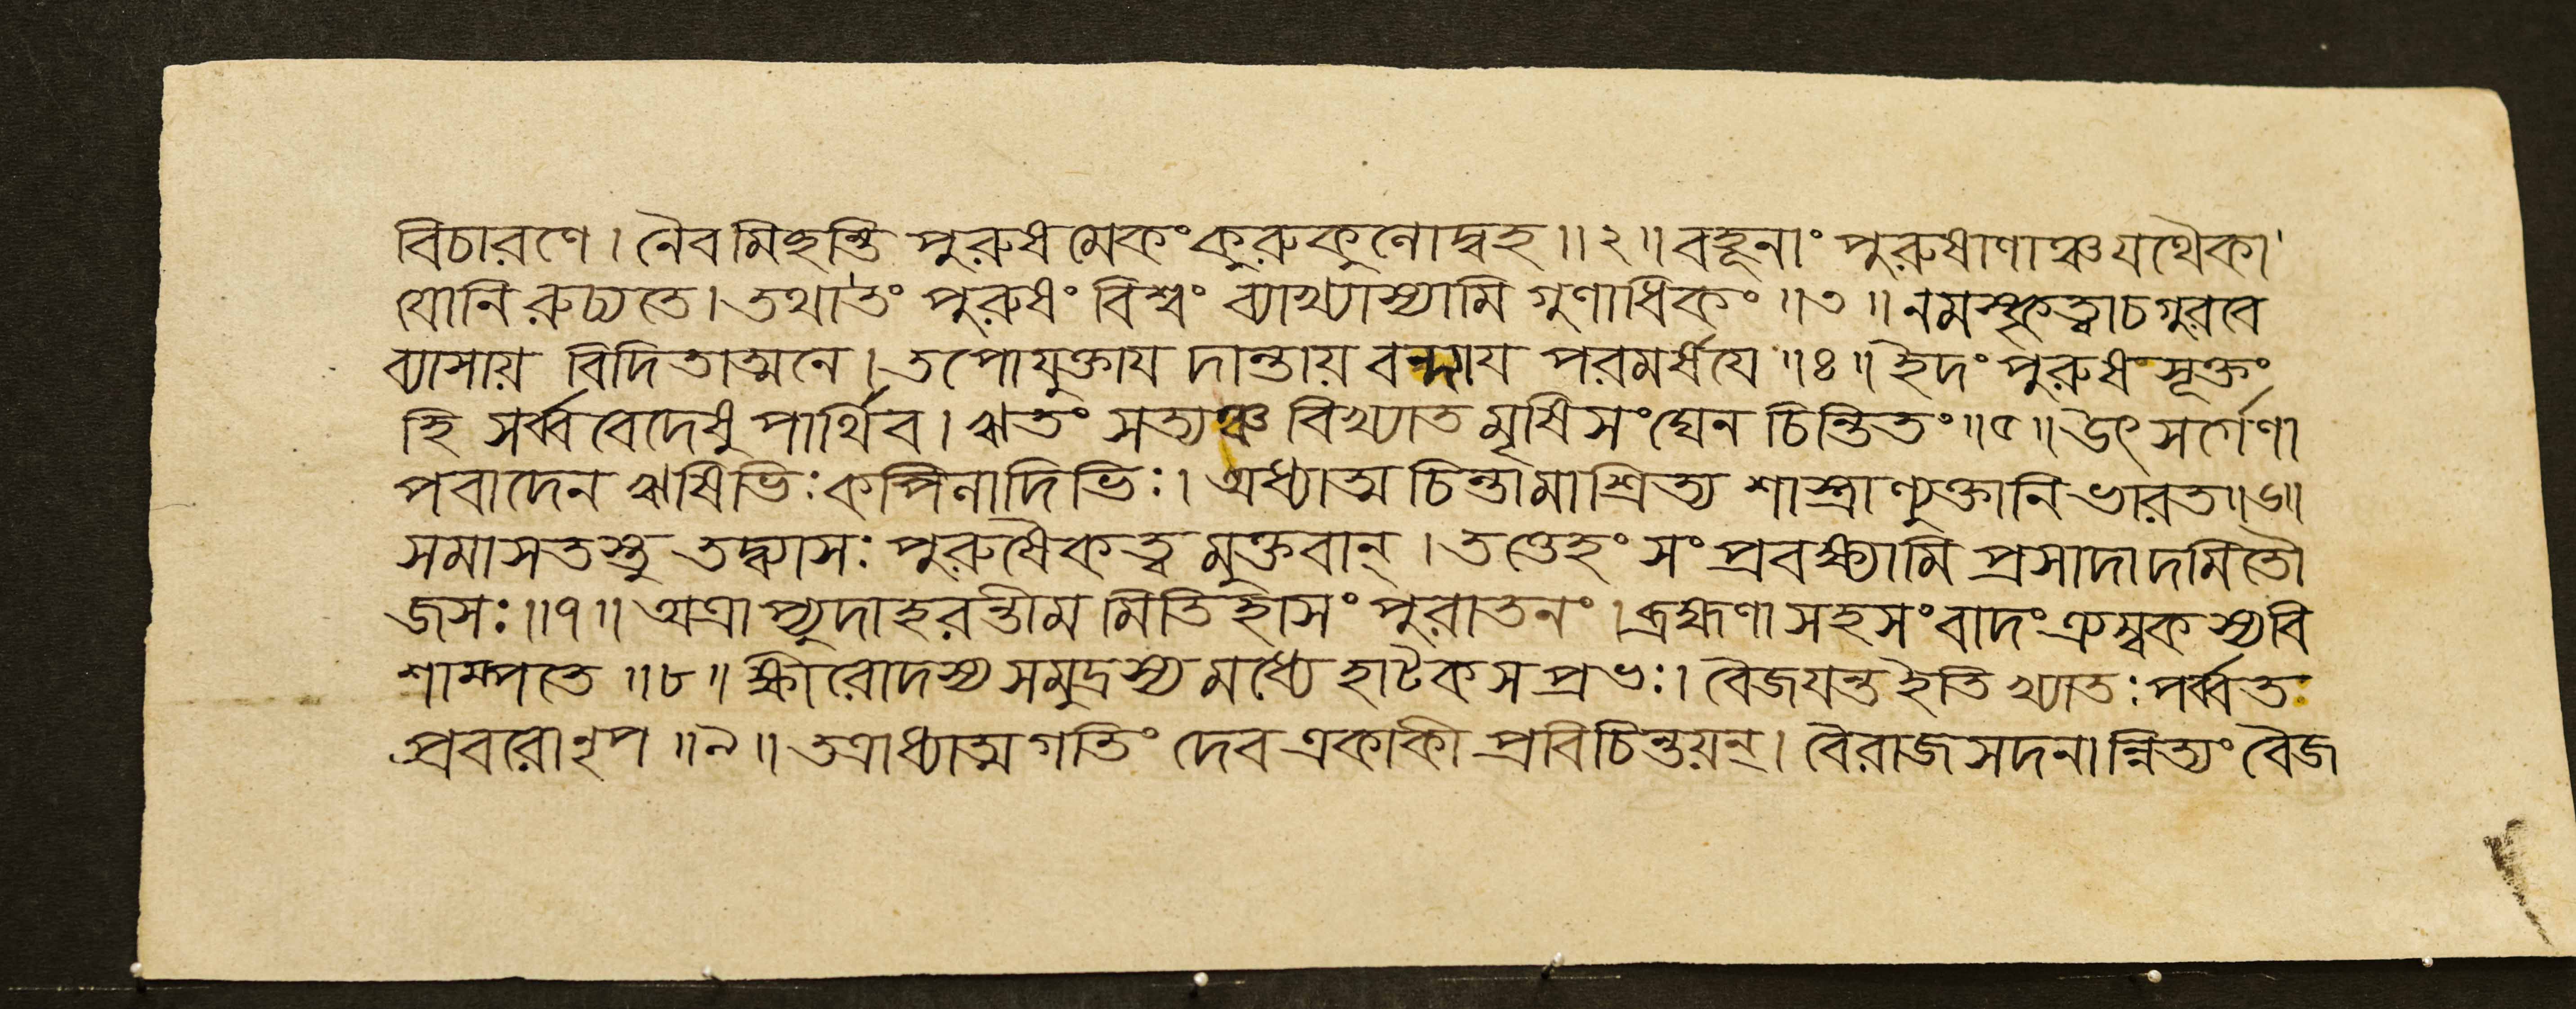 বিচারণে। নৈবমিচ্ছন্তি পুরুষমেকং কুরুকুলোদ্বহ॥২॥ বহূনাং পুরুষাণাঞ্চ যথৈকা
যোনিরুচ্যতে। তথা তং পুরুষং বিশ্বং ব্যাখ্যাস্যামি গুণাধিকং॥৩॥ নমস্কৃত্বা চ গুরবে
ব্যাসায় বিদিতাত্মনে। তপোযুক্তায় দান্তায় বন্দ্যায় পরমর্ষয়ে॥৪॥ ইদং পুরুষসূক্তং
হি সর্ব্ববেদেষু পার্থিব। ঋতং সত্যঞ্চ বিখ্যাতমৃষিসংঘেন চিন্তিতং॥৫॥ উৎসর্গেণা
পবাদেন ঋষিভিঃ কপিলাদিভিঃ। অধ্যাত্মচিন্তামাশ্রিত্য শাস্ত্রাণ্যুক্তানি ভারত॥৬॥
সমাসতস্তু তদ্ব্যাসঃ পুরুষৈকত্বমুক্তবান্। তত্তেহং সংপ্রবক্ষ্যামি প্রসাদাদমিতৌ
জসঃ॥৭॥ অত্রাপ্যুদাহরন্তীমমিতিহাসং পুরাতনং। ব্রহ্মণা সহ সংবাদং ত্র্যম্বকস্য বি
শাম্পতে॥৮॥ ক্ষীরোদস্য সমুদ্রস্য মধ্যে হাটকসপ্রভঃ। বৈজয়ন্ত ইতি খ্যাতঃ পর্ব্বত
প্রবরো নৃপ॥৯॥ তত্রাধ্যাত্মগতিং দেব একাকী প্রবিচিন্তয়ন্। বৈরাজসদনান্নিত্যং বৈজ